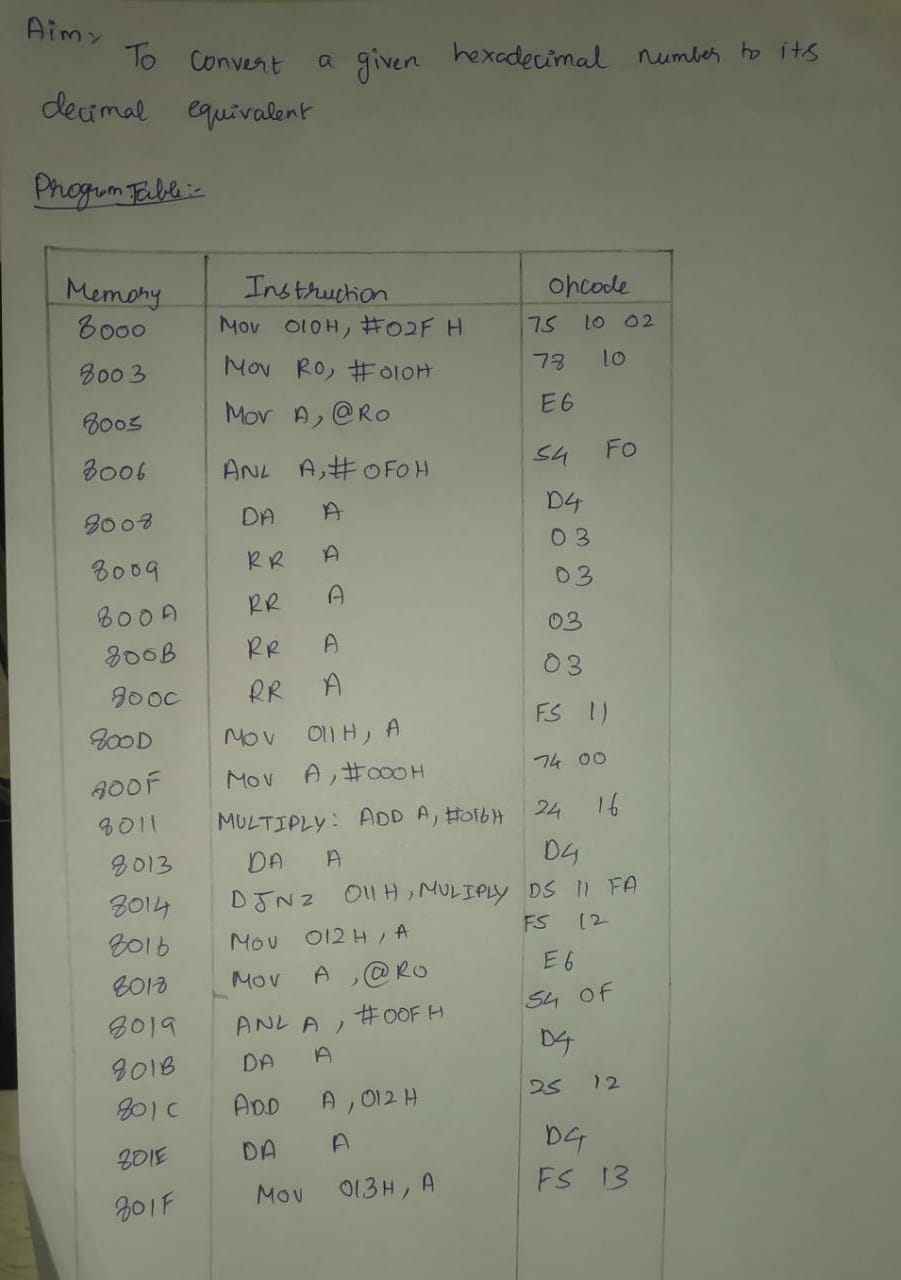 Aim:
To convert a given hexadecimal number to its
decimal equivalent
Program Table:-
Memory Instruction Opcode
8000 Mov 010H, #02F H 75 10 02
8003 Mov R0, #010H 78 10
8005 Mov A, @R0 E6
8006 ANL A, #0F0H 54 F0
8008 DA A D4
8009 RR A 03
800A RR A 03
800B RR A 03
800C RR A 03
800D Mov 011H, A F5 11
800F Mov A, #000H 74 00
8011 MULTIPLY: ADD A, #016H 24 16
8013 DA A D4
8014 DJNZ 011H, MULIPLY D5 11 FA
8016 Mov 012H, A F5 12
8018 Mov A, @R0 E6
8019 ANL A, #00FH 54 0F
801B DA A D4
801C ADD A, 012H 25 12
801E DA A D4
801F Mov 013H, A F5 13